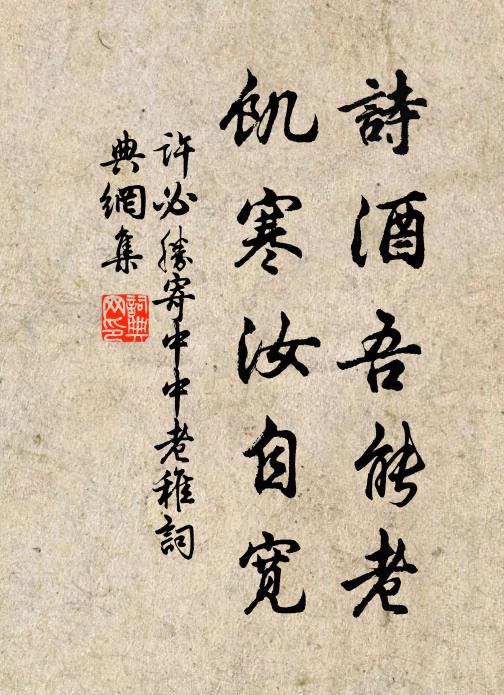 詩酒吾能老
飢寒汝自寬
許必勝寄中中老稚詞
典網集
詞典網印